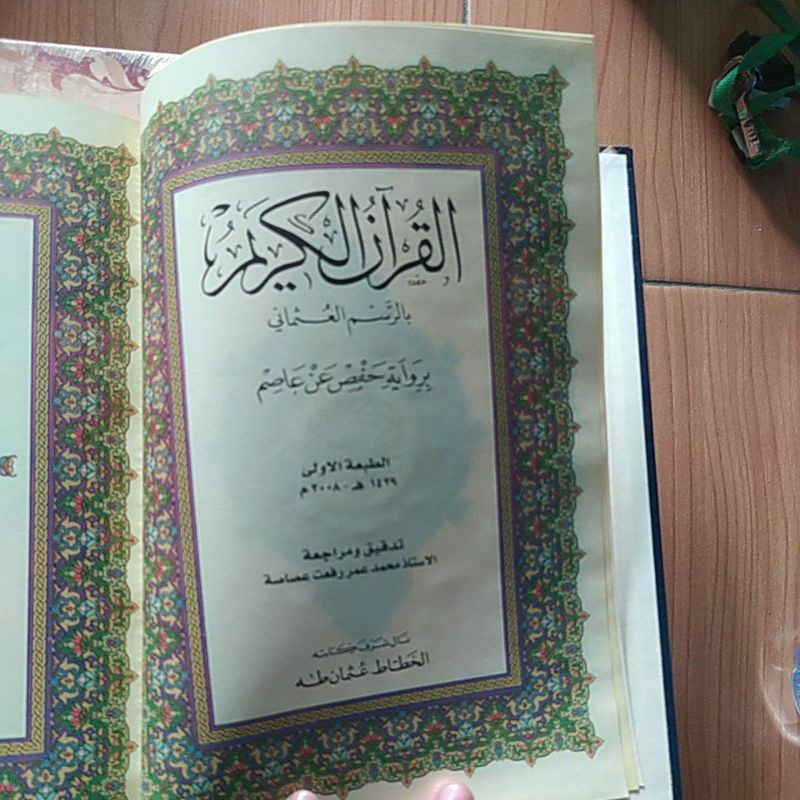 القُرآنُ الكَرِيَمُ
بالرَّسْم العُثماني
بِرِوَايَةِ حَفْصٍ عَنْ عَاصِم
الطبعة الاولى
١٤٢٩ هـ - ٢٠٠٨ م
تدقيق ومراجعة
الاستاذ محمد عمر رفعت عصاصة
نال شرف كتابته
الخَطاط عُثمان طه